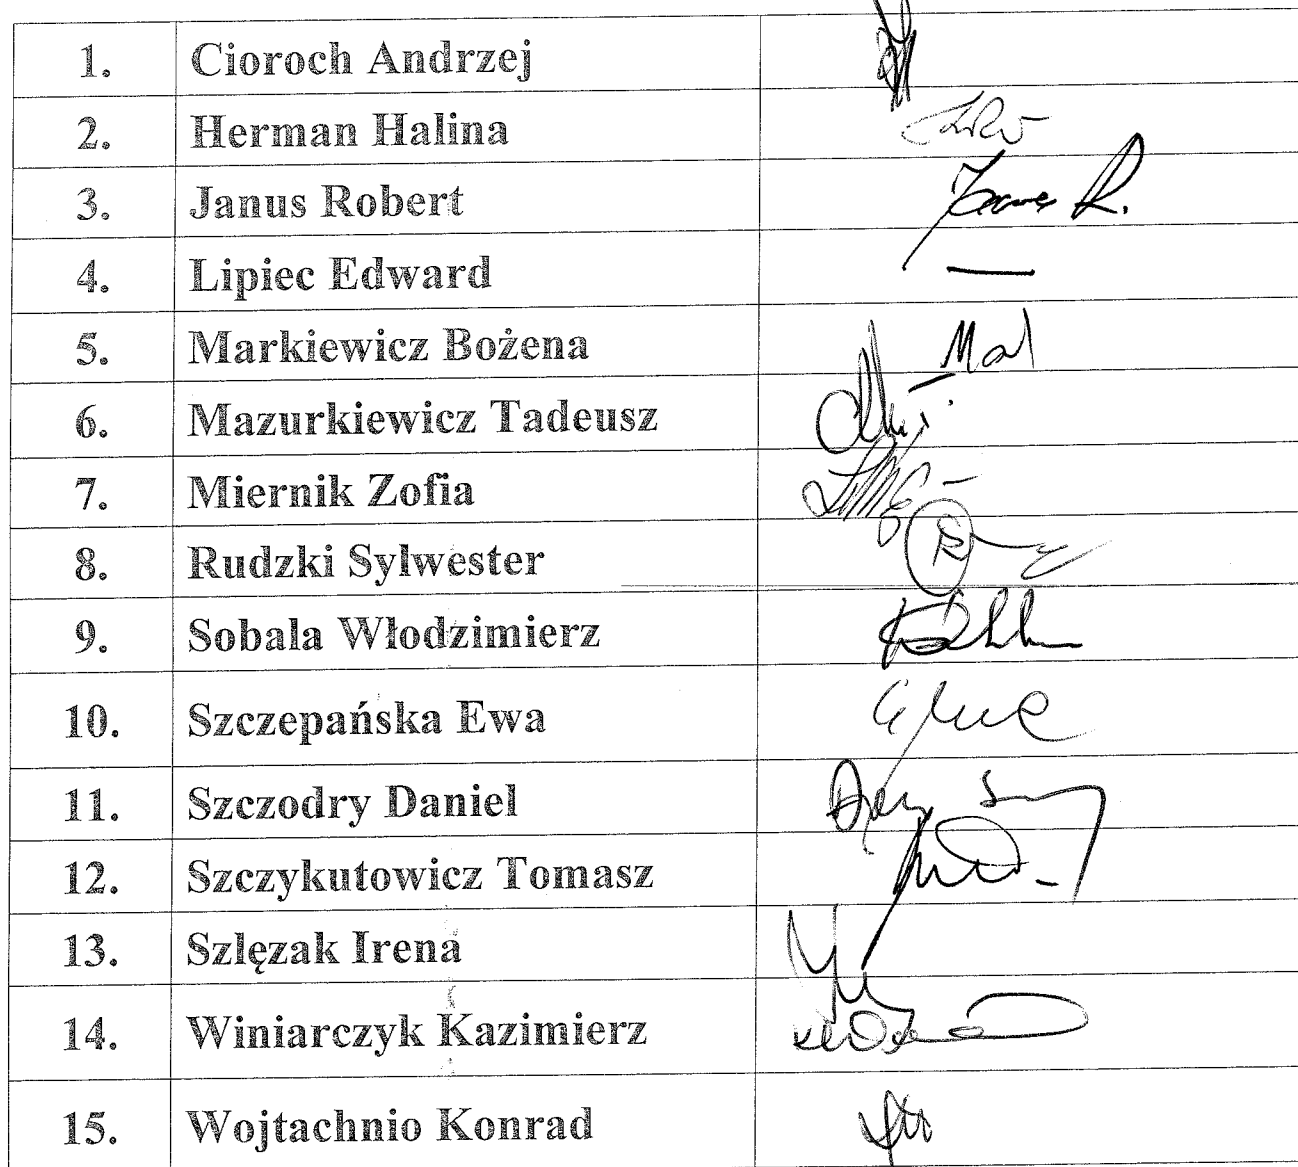 1. Cioroch Andrzej
2. Herman Halina
3. Janus Robert
4. Lipiec Edward —
5. Markiewicz Bożena
6. Mazurkiewicz Tadeusz
7. Miernik Zofia
8. Rudzki Sylwester
9. Sobala Włodzimierz
10. Szczepańska Ewa
11. Szczodry Daniel
12. Szczykutowicz Tomasz
13. Szlęzak Irena
14. Winiarczyk Kazimierz
15. Wojtachnio Konrad